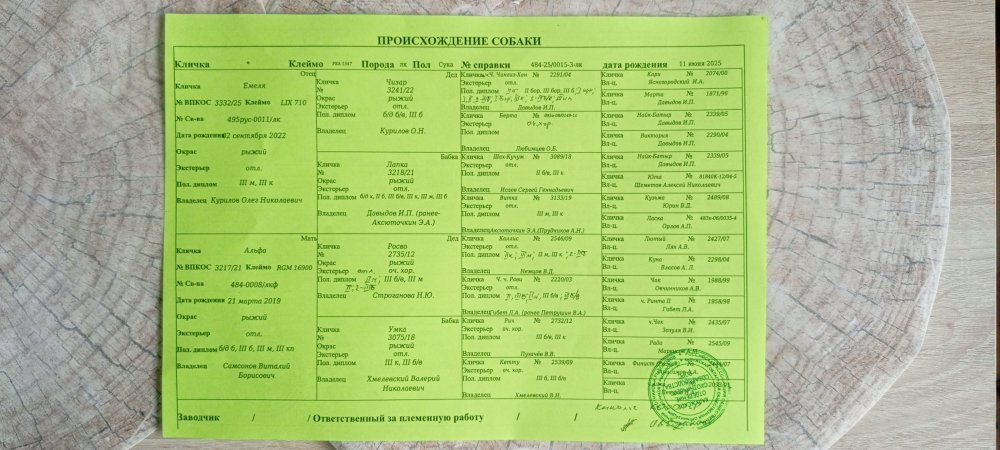 ПРОИСХОЖДЕНИЕ СОБАКИ
Кличка * Клеймо РКА 1347 Порода лк Пол Сука № справки 484-25/0015-3-лк дата рождения 11 июня 2025
Отец
Кличка Емеля
№ ВПКОС 3332/25 Клеймо LIX 710
№ Св-ва 495рус-0011/лк
Дата рождения 02 сентября 2022
Окрас рыжий
Экстерьер отл.
Пол. диплом III м, III к
Владелец Курилов Олег Николаевич
Мать
Кличка Альфа
№ ВПКОС 3217/21 Клеймо RGM 16900
№ Св-ва 484-0008/лкф
Дата рождения 21 марта 2019
Окрас рыжий
Экстерьер отл.
Пол. диплом б/д б, III б, III м, III кп
Владелец Самсонов Виталий
Борисович
Дед
Кличка Чизар
№ 3241/22
Окрас рыжий
Экстерьер отл.
Пол. диплом б/д б/в, III б
Владелец Курилов О.Н.
Бабка
Кличка Лапка
№ 3218/21
Окрас рыжий
Экстерьер отл.
Пол. диплом б/д к, II б, III б/в, III к, III м, III б
Владелец Давыдов И.П. (ранее-
Аксюточкин Э.А.)
Дед
Кличка Росво
№ 2735/12
Окрас рыжий
Экстерьер оч. хор.
Пол. диплом III б/в, III м
Владелец Строганова Н.Ю.
Бабка
Кличка Умка
№ 3075/18
Окрас рыжий
Экстерьер отл.
Пол. диплом III к, III б/в
Владелец Хмелевский Валерий
Николаевич
Кличка ч.Ч. Чингиз-Хан № 2291/04
Экстерьер отл.
Пол. диплом II бор, III бор, III б,
Владелец Давыдов И.П.
Кличка Берта №
Экстерьер оч. хор.
Пол. диплом
Владелец Любимцев О.Б.
Кличка Шах-Кучум № 3089/18
Экстерьер
Пол. диплом II б/в, III к
Владелец Исаев Сергей Геннадьевич
Кличка Витка № 3133/19
Экстерьер отл.
Пол. диплом III м, III к
Владелец Аксюточкин Э.А.(Прудчиков А.Н.)
Кличка Каллис № 2546/09
Экстерьер отл.
Пол. диплом II м, III к,
Владелец Немцов В.Д.
Кличка Ч. ч. Рави № 2220/03
Экстерьер отл.
Пол. диплом III б/в,
Владелец Гибет Л.А. (ранее Петрушин В.А.)
Кличка Рич № 2732/12
Экстерьер оч. хор.
Пол. диплом III б/в, III к
Владелец Пухачёв В.В.
Кличка Кетту № 2539/09
Экстерьер оч. хор.
Пол. диплом II б, III б/в
Владелец Хмелевский В.Н.
Кличка Кари № 2074/00
Вл-ц. Ясногородский И.А.
Кличка Марта № 1871/96
Вл-ц. Давыдов И.П.
Кличка Найк-Батыр № 2339/05
Вл-ц. Давыдов И.П.
Кличка Виктория № 2290/04
Вл-ц. Давыдов И.П.
Кличка Найк-Батыр № 2339/05
Вл-ц. Давыдов И.П.
Кличка Юна № 81840К-12/04-5
Вл-ц. Шеметов Алексей Николаевич
Кличка Кузьма № 2489/08
Вл-ц. Юрин В.Д.
Кличка Ласка № 483к-06/0035-4
Вл-ц. Орлов А.П.
Кличка Лютый № 2427/07
Вл-ц. Лях А.В.
Кличка Куна № 2298/04
Вл-ц. Власов А. Л.
Кличка Чак № 1988/99
Вл-ц. Овчинников А.В.
Кличка ч. Ринта II № 1958/98
Вл-ц. Гибет Л.А.
Кличка ч.Чак № 2435/07
Вл-ц. Зазуля В.И.
Кличка Рада № 2545/09
Вл-ц.
Кличка
Вл-ц.
Кличка
Вл-ц.
Заводчик / / Ответственный за племенную работу / /